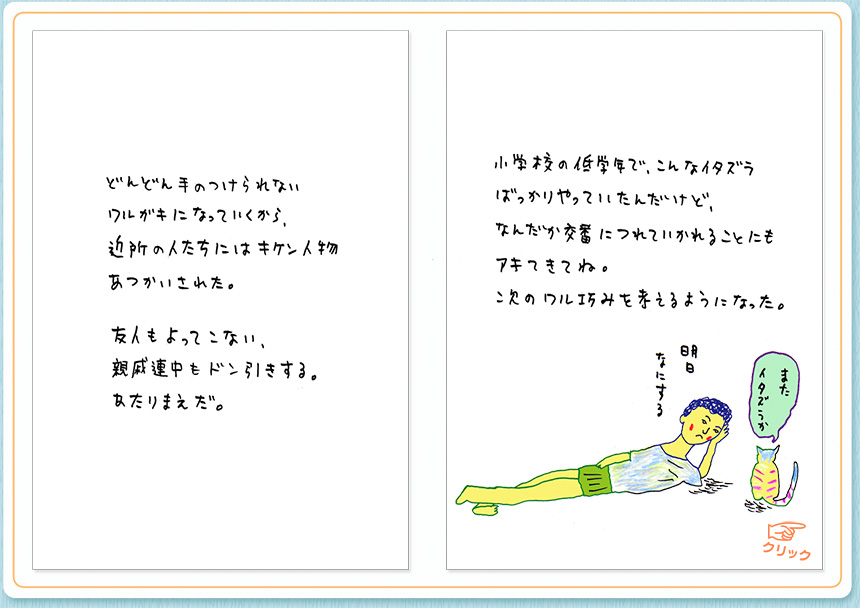 どんどん手のつけられない
ワルガキになっていくから、
近所の人たちにはキケン人物
あつかいされた。
友人もよってこない、
親戚連中もドン引きする。
あたりまえだ。
小学校の低学年で、こんなイタズラ
ばっかりやっていたんだけど、
なんだか交番につれていかれることにも
アキてきてね。
次のワル巧みを考えるようになった。
明日
なにする
また
イタズラか
クリック